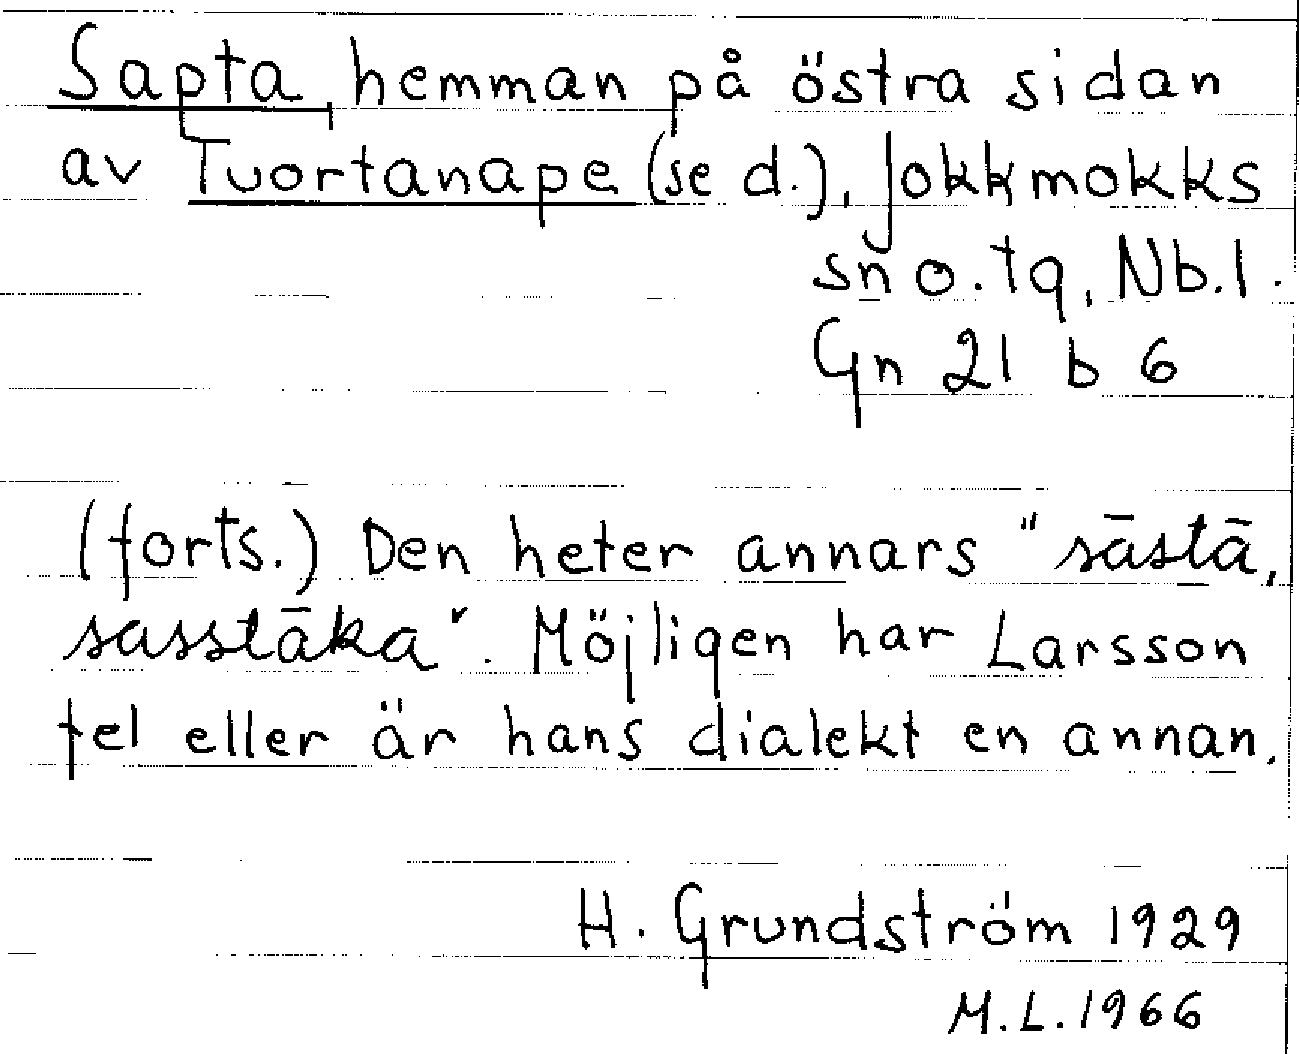 Sapta hemman på östra sidan
av Tuortanape (se d.), Jokkmokks
sn o. tg, Nb. l.
Gn 21 b 6
(forts.) Den heter annars "sāstā,
sasstāka". Möjligen har Larsson
fel eller är hans dialekt en annan.
H. Grundström 1929
M.L. 1966